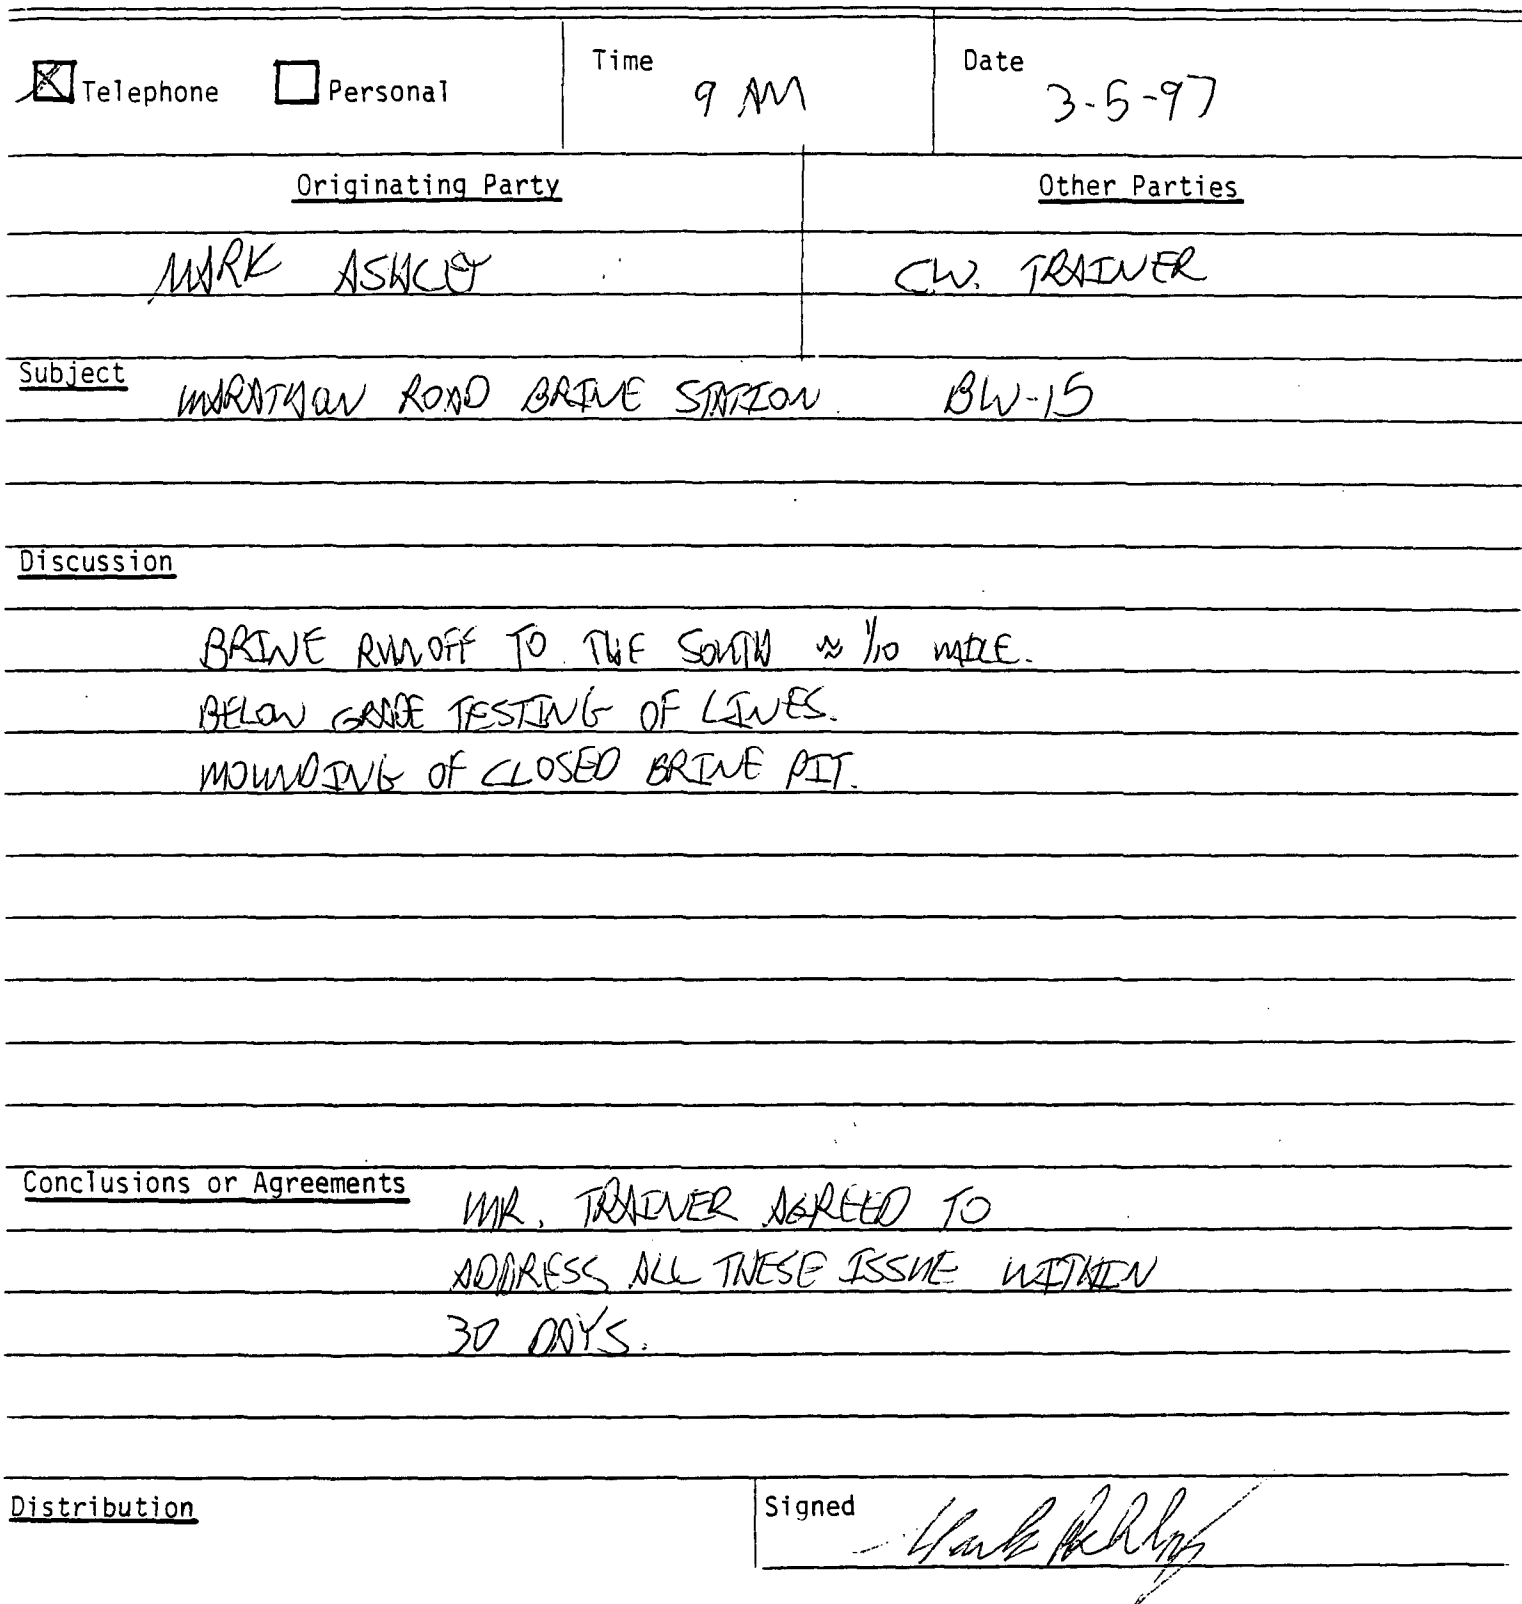 Telephone Personal Time 9 AM Date 3-5-97
Originating Party Other Parties
MARK ASHLEY C.W. TRAINER
Subject MARATHON ROAD BRINE STATION BW-15
Discussion
BRINE RUNOFF TO THE SOUTH ≈ 1/10 MILE.
BELOW GRADE TESTING OF LINES.
MOUNDING OF CLOSED BRINE PIT.
Conclusions or Agreements MR. TRAINER AGREED TO
ADDRESS ALL THESE ISSUE WITHIN
30 DAYS.
Distribution Signed